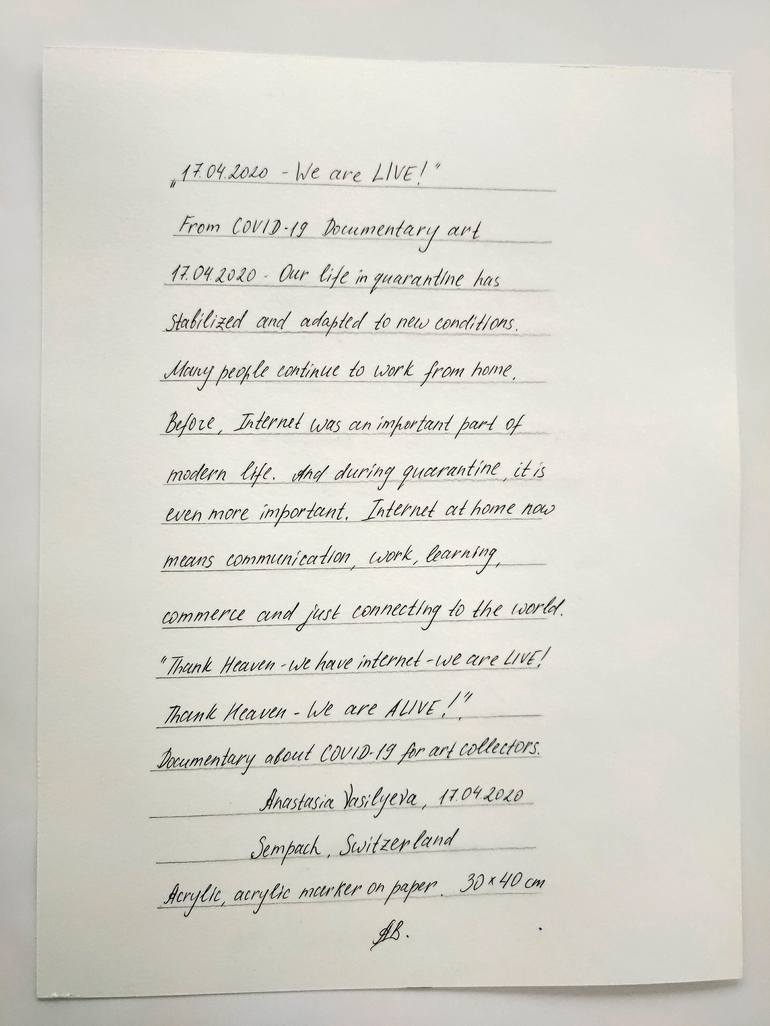 „17.04.2020 - We are LIVE!"
From COVID-19 Documentary art
17.04.2020 - Our life in quarantine has
stabilized and adapted to new conditions.
Many people continue to work from home.
Before, Internet was an important part of
modern life. And during quarantine, it is
even more important. Internet at home now
means communication, work, learning,
commerce and just connecting to the world.
"Thank Heaven - we have internet - we are LIVE!
Thank Heaven - We are ALIVE!"
Documentary about COVID-19 for art collectors.
Anastasia Vasilyeva, 17.04.2020
Sempach, Switzerland
Acrylic, acrylic marker on paper. 30×40 cm
AB.